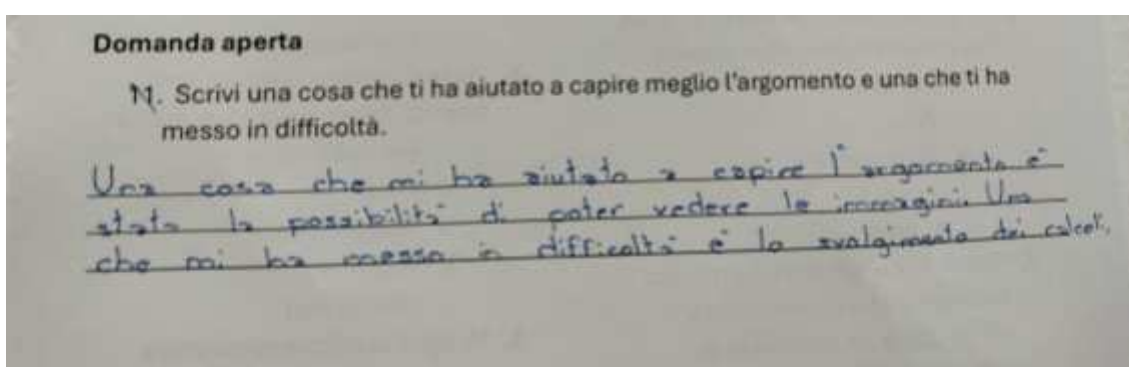 Domanda aperta
11. Scrivi una cosa che ti ha aiutato a capire meglio l'argomento e una che ti ha
messo in difficoltà.
Una cosa che mi ha aiutato a capire l'argomento è
stata la possibilità di poter vedere le immagini. Una
che mi ha messo in difficoltà è lo svolgimento dei calcoli.